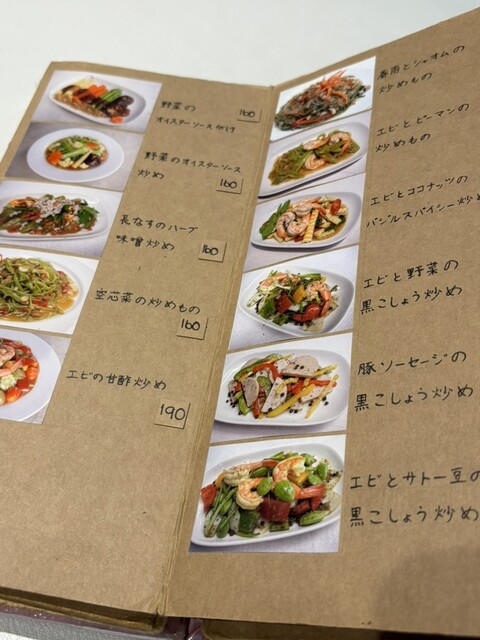 野菜の
オイスターソースがけ 160
野菜のオイスターソース
炒め 160
長なすのハーブ
味噌炒め 160
空芯菜の炒めもの
160
エビの甘酢炒め
190
春雨とシャオムの
炒めもの
エビとピーマンの
炒めもの
エビとココナッツの
バジルスパイシー炒め
エビと野菜の
黒こしょう炒め
豚ソーセージの
黒こしょう炒め
エビとサトー豆の
黒こしょう炒め